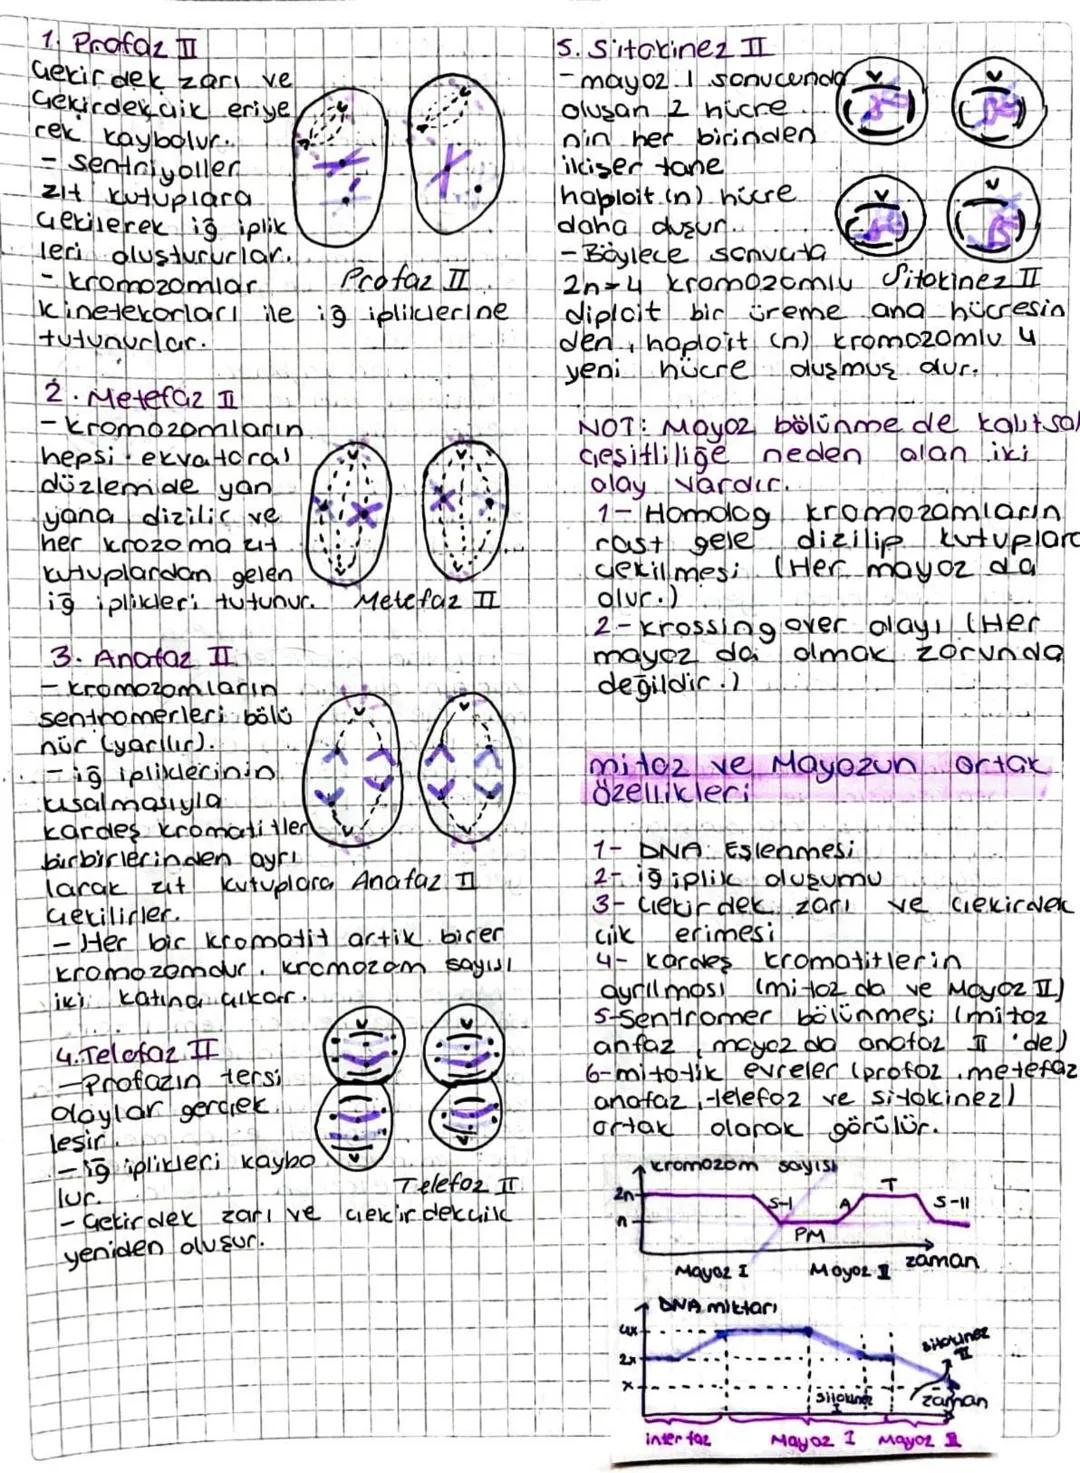 1. Profaz II
Çekirdek zarı ve
Çekirdekçik eriye
rek kaybolur.
- Sentriyoller
zıt kutuplara
çekilerek iğ iplik
leri oluştururlar.
- kromozomlar
kinetekorları ile iğ ipliklerine
tutunurlar.
Profaz II
2. Metefaz II
- Kromozomların
hepsi ekvatoral
düzlemde yan
yana dizilir ve
her krozoma zıt
kutuplardan gelen
iğ iplikleri tutunur.
Metefaz II
3. Anafaz II
- kromozomların
sentromerleri bölü
nür (yarılır).
- iğ ipliklerinin
kısalmasıyla
kardeş kromatitler
birbirlerinden ayrı
larak zıt kutuplara
çekilirler.
Anafaz II
- Her bir kromatit artık birer
kromozomdur. kromozom sayısı
iki katına çıkar.
4. Telofaz II
- Profazın tersi
olaylar gerçek
leşir.
- iğ iplikleri kaybo
lur.
- Çekirdek zarı ve çekirdekçik
yeniden oluşur.
Telefoz II
5. Sitokinez II
- mayoz 1 sonucunda
oluşan 2 hücre
nin her birinden
ikişer tane
haploit (n) hücre
daha oluşur.
- Böylece sonuçta
2n=4 kromozomlu
diploit bir üreme ana hücresin
den, haploit (n) kromozomlu 4
yeni hücre oluşmuş olur.
Sitokinez II
NOT: Mayoz bölünme de kalıtsal
çeşitliliğe neden olan iki
olay vardır.
1- Homolog kromozomların
rast gele dizilip kutuplara
çekilmesi (Her mayoz da
olur.)
2- krossing over olayı (Her
mayoz da olmak zorunda
değildir.)
mitoz ve Mayozun ortak
özellikleri
1- DNA Eşlenmesi
2- iğ iplik oluşumu
3- Çekirdek zarı ve çekirdek
çik erimesi
4- kardeş kromatitlerin
ayrılması (mitoz da ve Mayoz II)
5- Sentromer bölünmesi (mitoz
anfaz, mayoz da anafaz II 'de)
6- mitotik evreler (profoz, metefaz
anafaz, telefoz ve sitokinez)
ortak olarak görülür.
kromozom sayısı
2n
n
S-I
PM
A
T
S-II
zaman
Mayoz I
Mayoz II
DNA miktarı
4x
2x
x
sitokinez
I
sitokinez
II
zaman
interfaz
Mayoz I
Mayoz II